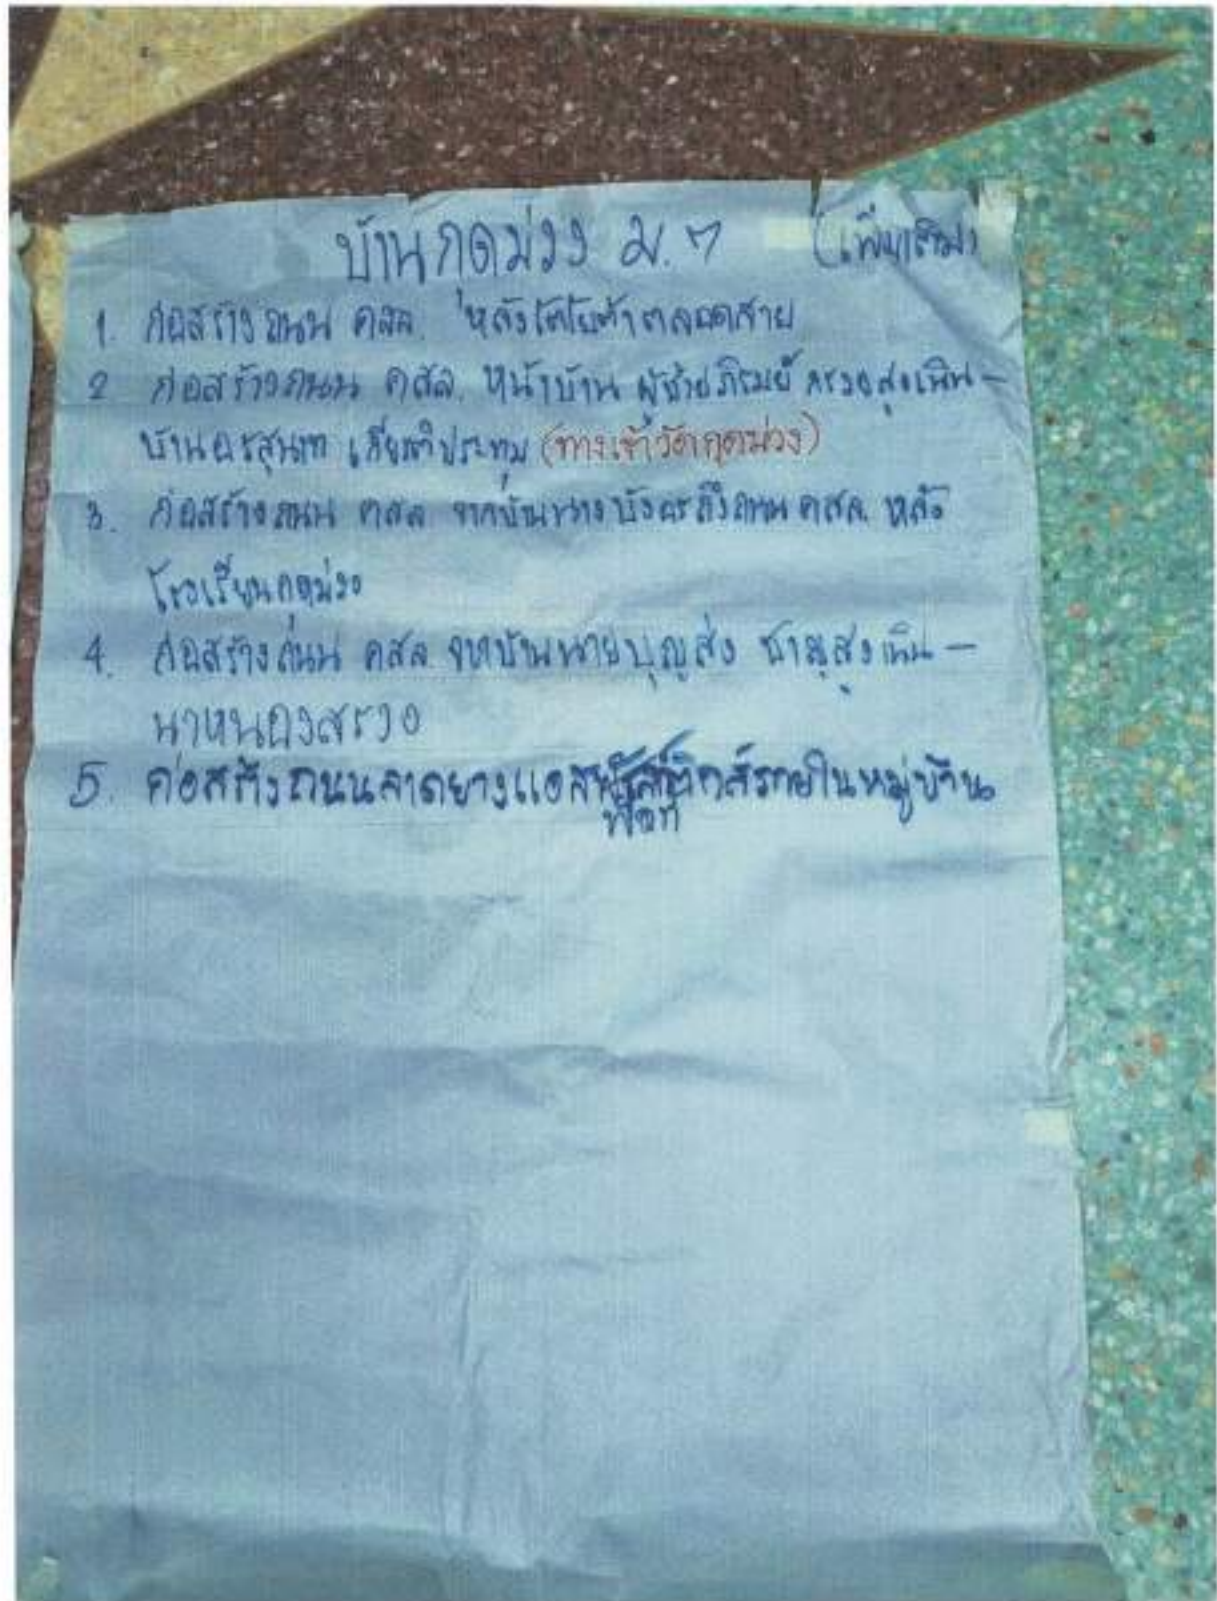 บ้านกุดม่วง ม. 7 (เพิ่มเติม)
1. ก่อสร้างถนน คสล. หลังโตโยต้าตลอดสาย
2 ก่อสร้างถนน คสล. หน้าบ้าน ผู้ช่วยภิรมย์ สูงเนิน -
บ้าน เกียรติประทุม (ทางเข้าวัดกุดม่วง)
3. ก่อสร้างถนน คสล จากบ้านนางบังอรถึงถนน คสล. หลัง
โรงเรียนกุดม่วง
4. ก่อสร้างถนน คสล จากบ้านนายบุญส่ง ชาญสูงเนิน -
นาหนองสรวง
5. ก่อสร้างถนนลาดยางแอสฟัลท์ติกส์ภายในหมู่บ้าน